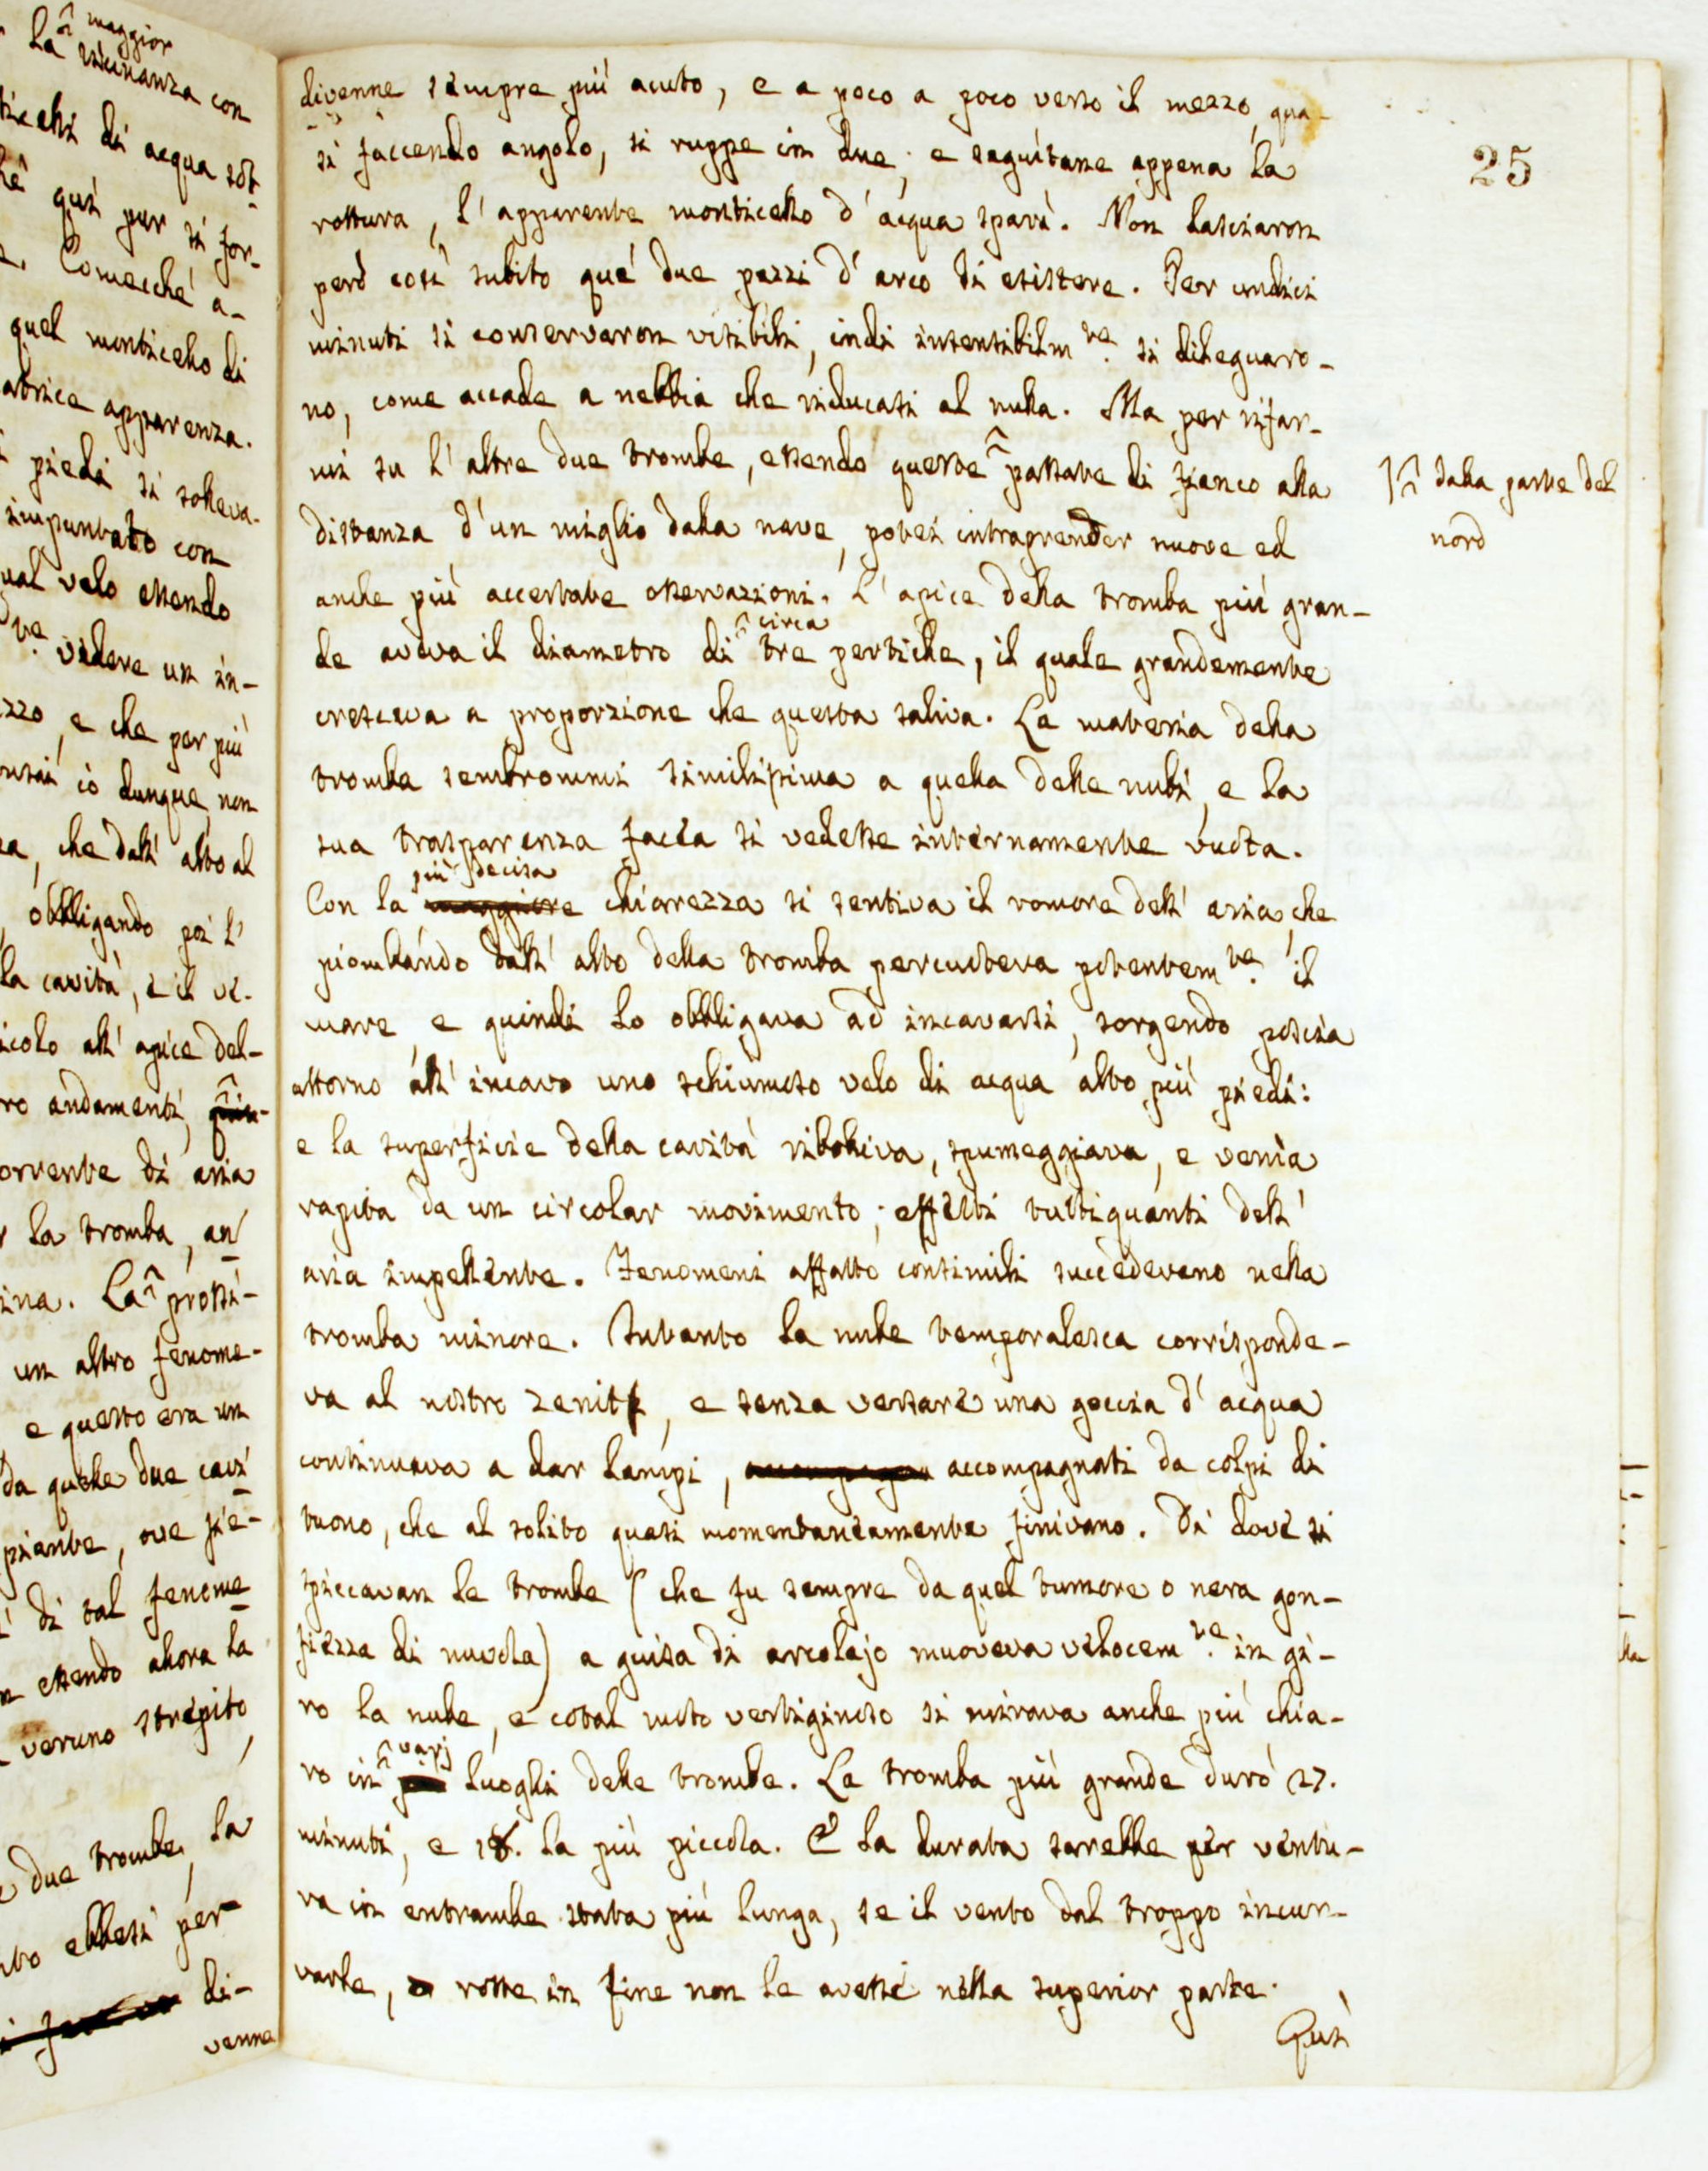 La maggior
vicinanza con
di acqua sot-
quì pur si for-
Comecchè a-
quel monticello di
apparenza.
piedi si solleva-
con
velo essendo
vedere un in-
e che per più
io dunque non
che dall' alto al
obbligando poi l'
la cavità, e il ve-
all' apice del-
andamenti,
di aria
la tromba, an
La prossi-
un altro fenome-
e questo era un
da quelle due cavi
ove fie-
di tal fenome
essendo allora la
veruno strepito
due trombe, la
ebbesi per
di-
venne
25
divenne sempre più acuto, e a poco a poco verso il mezzo, qua-
si faccendo angolo, si ruppe in due; e seguitane appena la
rottura, l' apparente monticello d' acqua sparì. Non lasciaron
però così subito que' due pezzi d' arco di esistere. Per undici
minuti si conservaron visibili, indi insensibilm.te si dileguaro-
no, come accade a nebbia che riducasi al nulla. Ma per rifar-
mi su l' altre due trombe, essendo queste passate di fianco alla
dalla parte del
nord
distanza d' un miglio dalla nave, potei intraprender nuove ed
anche più accertate osservazioni. L' apice della tromba più gran-
circa
de aveva il diametro di tre pertiche, il quale grandemente
cresceva a proporzione che questa saliva. La materia della
tromba sembrommi similissima a quella delle nubi, e la
sua trasparenza facea si vedesse internamente vuota.
più decisa
Con la maggiore chiarezza si sentiva il romore dell' aria, che
piombando dall' alto della tromba percuoteva potentem.te il
mare, e quindi lo obbligava ad incavarsi, sorgendo poscia
attorno all' incavo uno schiumoso velo di acqua alto più piedi:
e la superficie della cavità ribolliva, spumeggiava, e venìa
rapita da un circolar movimento; effetti tuttiquanti dell'
aria impellente. Fenomeni affatto consimili succedevano nella
tromba minore. Intanto la nube temporalesca corrisponde-
va al nostro zenit, e senza versare una goccia d' acqua
continuava a dar lampi, accompagnati da colpi di
tuono, che al solito quasi momentaneamente finivano. Di dove si
spiccavan le trombe (che fu sempre da quel tumore o nera gon-
fiezza di nuvola) a guisa di arcolajo muoveva velocem.te in gi-
ro la nube, e cotal moto vertiginoso si mirava anche più chia-
varj
ro in luoghi delle trombe. La tromba più grande durò 27.
minuti, e 18. la più piccola. E la durata sarebbe per ventu-
ra in entrambe stata più lunga, se il vento dal troppo incur-
varle, rotte in fine non le avesse nella superior parte.
Quì